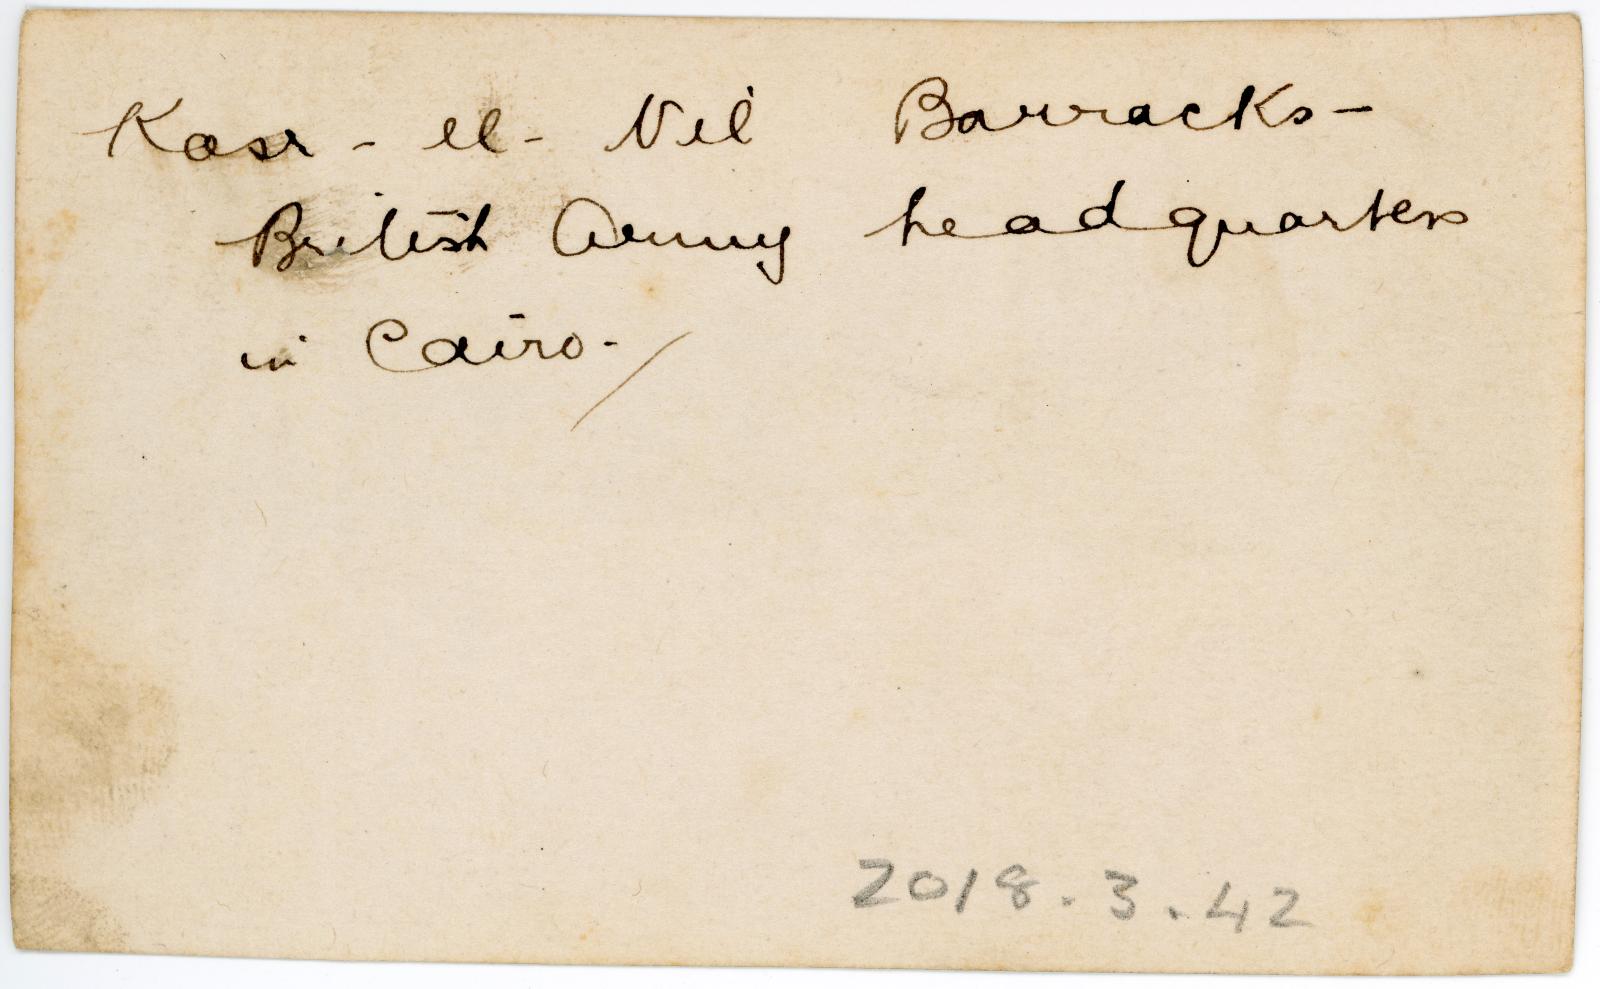 Kasr - el - Nil Barracks -
British Army headquarters
in Cairo. /
2018.3.42